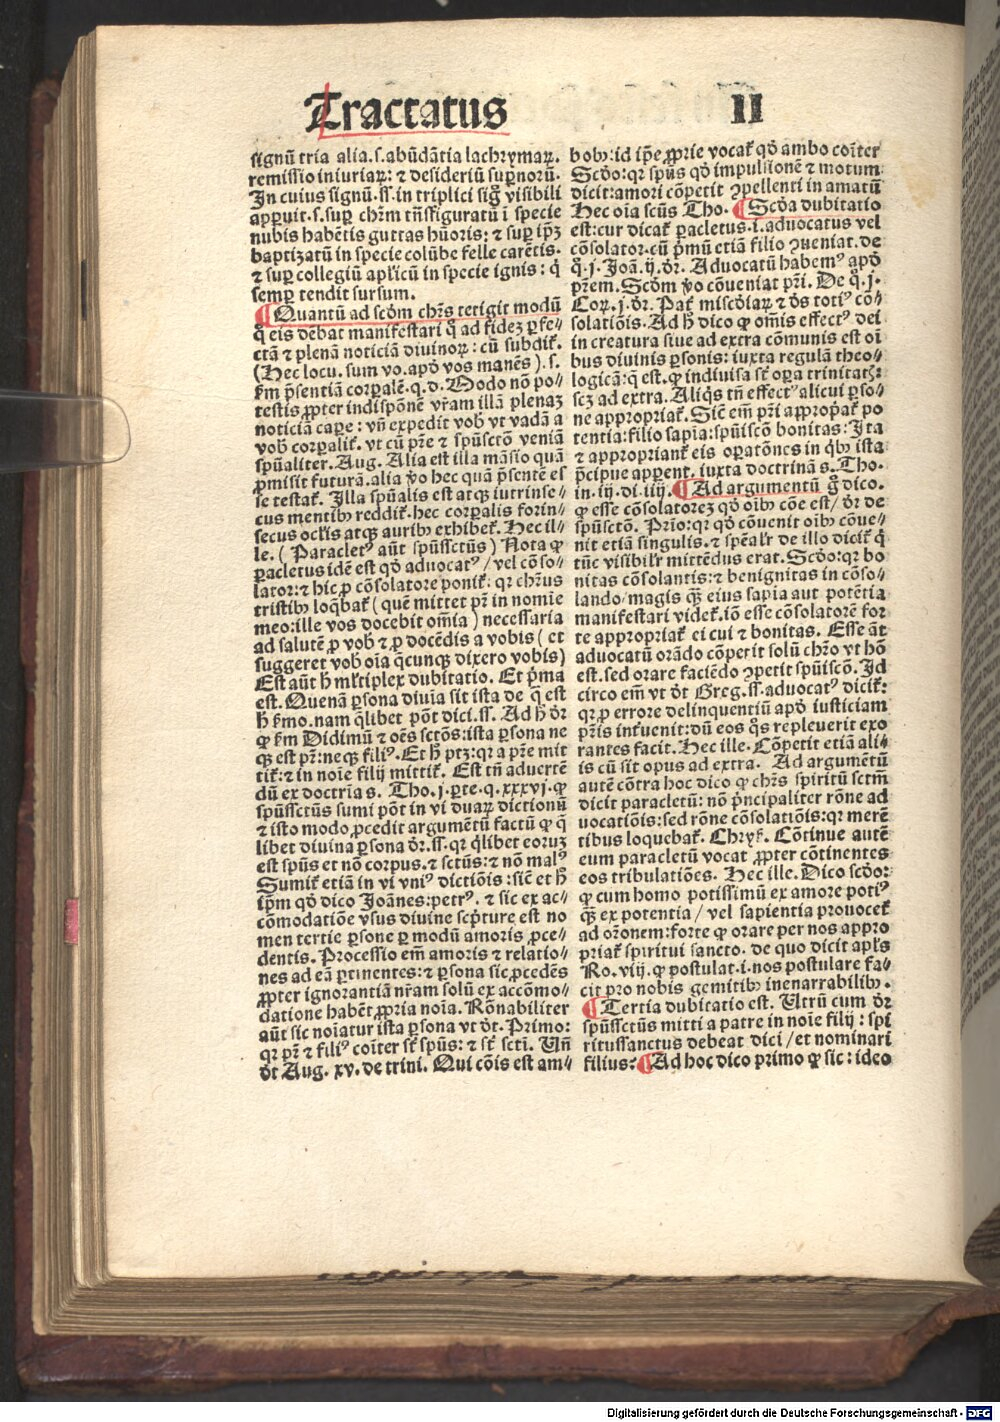 Tractatus II
signū tria alia.s.abūdātia lachrymaꝝ.
remissio iniuriaꝝ: ⁊ desideriū suꝑnoꝝ.
In cuius signū.ss.in triplici sig̃ visibili
apꝑuit.s.suꝑ chr̄m tñsfiguratū ī specie
nubis habētis guttas hūoris: ⁊ suꝑ ip̄ꝫ
baptizatū in specie colūbe felle carētis.
⁊ suꝑ collegiū apl̄icū in specie ignis: q̇
semꝑ tendit sursum.
¶ Quantū ad scd̄m chr̄s tetigit modū
q̇ eis debat manifestari q̇ ad fidez ꝑfe//
ctā ⁊ plenā noticiā diuinoꝝ: cū subdit̄.
(Hec locu.sum vo.apd̄ vos manēs).s.
ẜm p̄sentiā corꝑalē.q.d.Modo nō po//
testis ꝓpter indispōnē vr̄am illā plenaꝫ
noticiā caꝑe: vñ expedit vob̄ vt vadā a
vob̄ corꝑalit̄.vt cū pr̄e ⁊ spūsctō veniā
spūaliter.Aug.Alia est illa māsio quā
ꝓmisit futurā.alia v̊o hec quā p̄sentē es
se testat̄.Illa spūalis est atqꝫ iutrinse//
cus mentibꝫ reddit̄.hec corꝑalis forin//
secus ocl̄is atqꝫ auribꝫ exhibet̄.Hec il//
le.(Paraclet⁹ aūt spūssctūs) Nota ꝙ
ꝑacletus idē est qd̄ aduocat⁹/vel cōso//
lator:⁊ hic ꝓ cōsolatore ponit̄: qꝛ chr̄us
tristibꝫ loq̄bat̄ (quē mittet pr̄ in nomīe
meo:ille vos docebit om̄ia) necessaria
ad salutē ꝓ vob̄ ⁊ ꝓ docēdis a vobis (et
suggeret vob̄ oīa q̄cunqꝫ dixero vobis)
Est aūt h̄ ml̄tiplex dubitatio. Et p̄ma
est.Quenā ꝑsona diuīa sit ista de q̄ est
h̄ ẜmo.nam q̄libet pōt dici.ss. Ad h̄ dr̄
ꝙ ẜm Didimū ⁊ oēs sctōs:ista ꝑsona ne
qꝫ est pr̄:neqꝫ fili⁹.Et h̄ ptꝫ:qꝛ a pr̄e mit
tit̄:⁊ in noīe filij mittit̄. Est tñ aduertē
dū ex doctrīa s. Tho.j.ꝑte.q.xxxvj.ꝙ
spūssctūs sumi pōt in vi duaꝝ dictionū
⁊ isto modo ꝓcedit argumētū factū ꝙ q̄
libet diuina ꝑsona dr̄.ss.qꝛ q̄libet eoruꝫ
est spūs et nō corpus.⁊ sctūs:⁊ nō mal⁹
Sumit̄ etiā in vi vni⁹ dictiōis:sic̄ et h̄
ip̄m qd̄ dico Joānes:petr⁹.⁊ sic ex ac//
cōmodatiōe vsus diuine scp̄ture est no
men tertie ꝑsone ꝑ modū amoris ꝓce//
dentis. Processio em̄ amoris ⁊ relatio//
nes ad eā ꝑtinentes:⁊ ꝑsona sic ꝓcedēs
ꝓpter ignorantiā nr̄am solū ex accōmo//
datione habēt ꝓpria noīa. Rōnabiliter
aūt sic noīatur ista ꝑsona vt dt̄. Primo:
qꝛ pr̄ ⁊ fili⁹ coīter st̄ spūs: ⁊ st̄ sctī. Vñ
dt̄ Aug. xv. de trini. Qui cōis est am//
bobꝫ:id ip̄e ꝓprie vocat̄ qd̄ ambo coīter
Scd̄o:qꝛ spūs qd̄ impulsionē ⁊ motum
dicit:amori cōpetit ꝯpellenti in amatū
Hec oīa scūs Tho. ¶ Scd̄a dubitatio
est:cur dicat̄ ꝑacletus.i.aduocatus vel
cōsolator.cū p̄mū etiā filio ꝯueniat.de
q̊.j.Joā.ij.dr̄. Aduocatū habem⁹ apd̄
pr̄em.Scd̄m v̊o cōueniat pr̄i. De q̊.j.
Coꝝ.j.dr̄. Pat̄ misc̄diaꝝ ⁊ d̄s toti⁹ cō//
solatiōis.Ad h̄ dico ꝙ om̄is effect⁹ dei
in creatura siue ad extra cōmunis est oī
bus diuinis ꝑsonis: iuxta regulā theo//
logicā:q̄ est.ꝙ indiuisa st̄ oꝑa trinitatꝭ:
scꝫ ad extra. Aliq̇s tñ effect⁹ alicui ꝑso//
ne appropriat̄. Sic̄ em̄ pr̄i appropat̄ po
tentia:filio sapīa:spūiscō bonitas: Ita
⁊ appropriant̄ eis oꝑatōnes in q̇bꝫ ista
p̄cipue apꝑent. iuxta doctrinā s. Tho.
in.iij.di.iiij. ¶ Ad argumentū g̊ dico.
ꝙ esse cōsolatoreꝫ qd̄ oībꝫ cōe est/dr̄ de
spūsctō. Prīo:qꝛ qd̄ cōuenit oībꝫ cōue//
nit etiā singulis.⁊ spēal̄r de illo dicit̄ q̇
tūc visibil̄r mittēdus erat. Scd̄o:qꝛ bo
nitas cōsolantis:⁊ benignitas in cōso//
lando magis qꝫ̄ eius sapīa aut potētia
manifestari videt̄.iō esse cōsolatorē for
te appropriat̄ ei cui ⁊ bonitas. Esse āt
aduocatū orādo cōpetit solū chr̄o vt hō
est.sed orare faciēdo ꝯpetit spūiscō. Id
circo em̄ vt dt̄ Greg.ss.aduocat⁹ dicit̄:
qꝛ ꝓ errore delinquentiū apd̄ iusticiam
pr̄is int̄uenit:dū eos q̊s repleuerit exo
rantes facit.Hec ille. Cōpetit etiā ali//
is cū sit opus ad extra. Ad argumētū
autē cōtra hoc dico ꝙ chr̄s spiritū sctm̄
dicit paracletū: nō p̄ncipaliter rōne ad
uocatiōis:sed rōne cōsolatiōis:qꝛ merē
tibus loquebat̄. Chryẜ. Cōtinue autē
eum paracletū vocat ꝓpter cōtinentes
eos tribulatiōes. Hec ille. Dico scd̄o:
ꝙ cum homo potissimū ex amore poti⁹
qꝫ̄ ex potentia / vel sapientia prouocet̄
ad orōnem:forte ꝙ orare per nos appro
priat̄ spiritui sancto. de quo dicit apl̄s
Ro.viij.ꝙ postulat.i.nos postulare fa//
cit pro nobis gemitibꝫ inenarrabilibꝫ.
¶ Tertia dubitatio est. Vtrū cum dr̄
spūssctūs mitti a patre in noīe filij: spi
rituſsanctus debeat dici/et nominari
filius: ¶ Ad hoc dico primo ꝙ sic: ideo
Digitalisierung gefördert durch die Deutsche Forschungsgemeinschaft - DFG